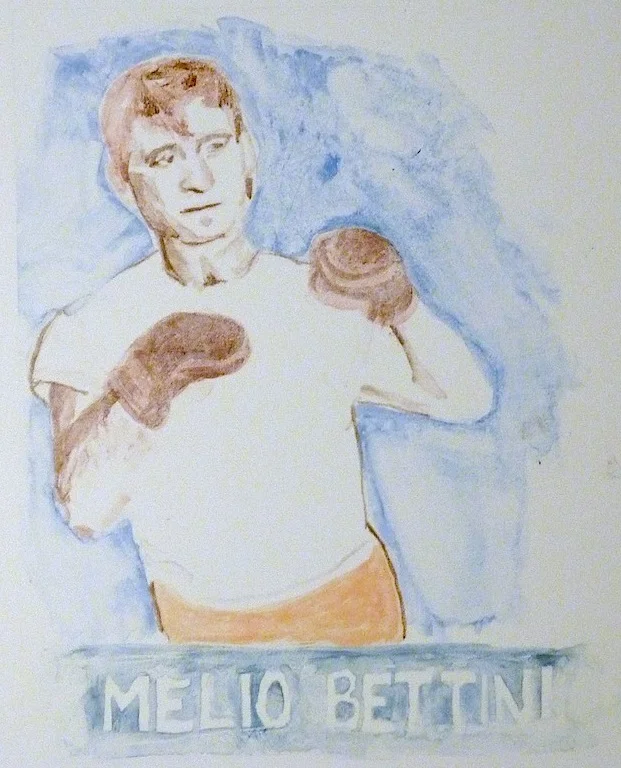 MELIO BETTINI